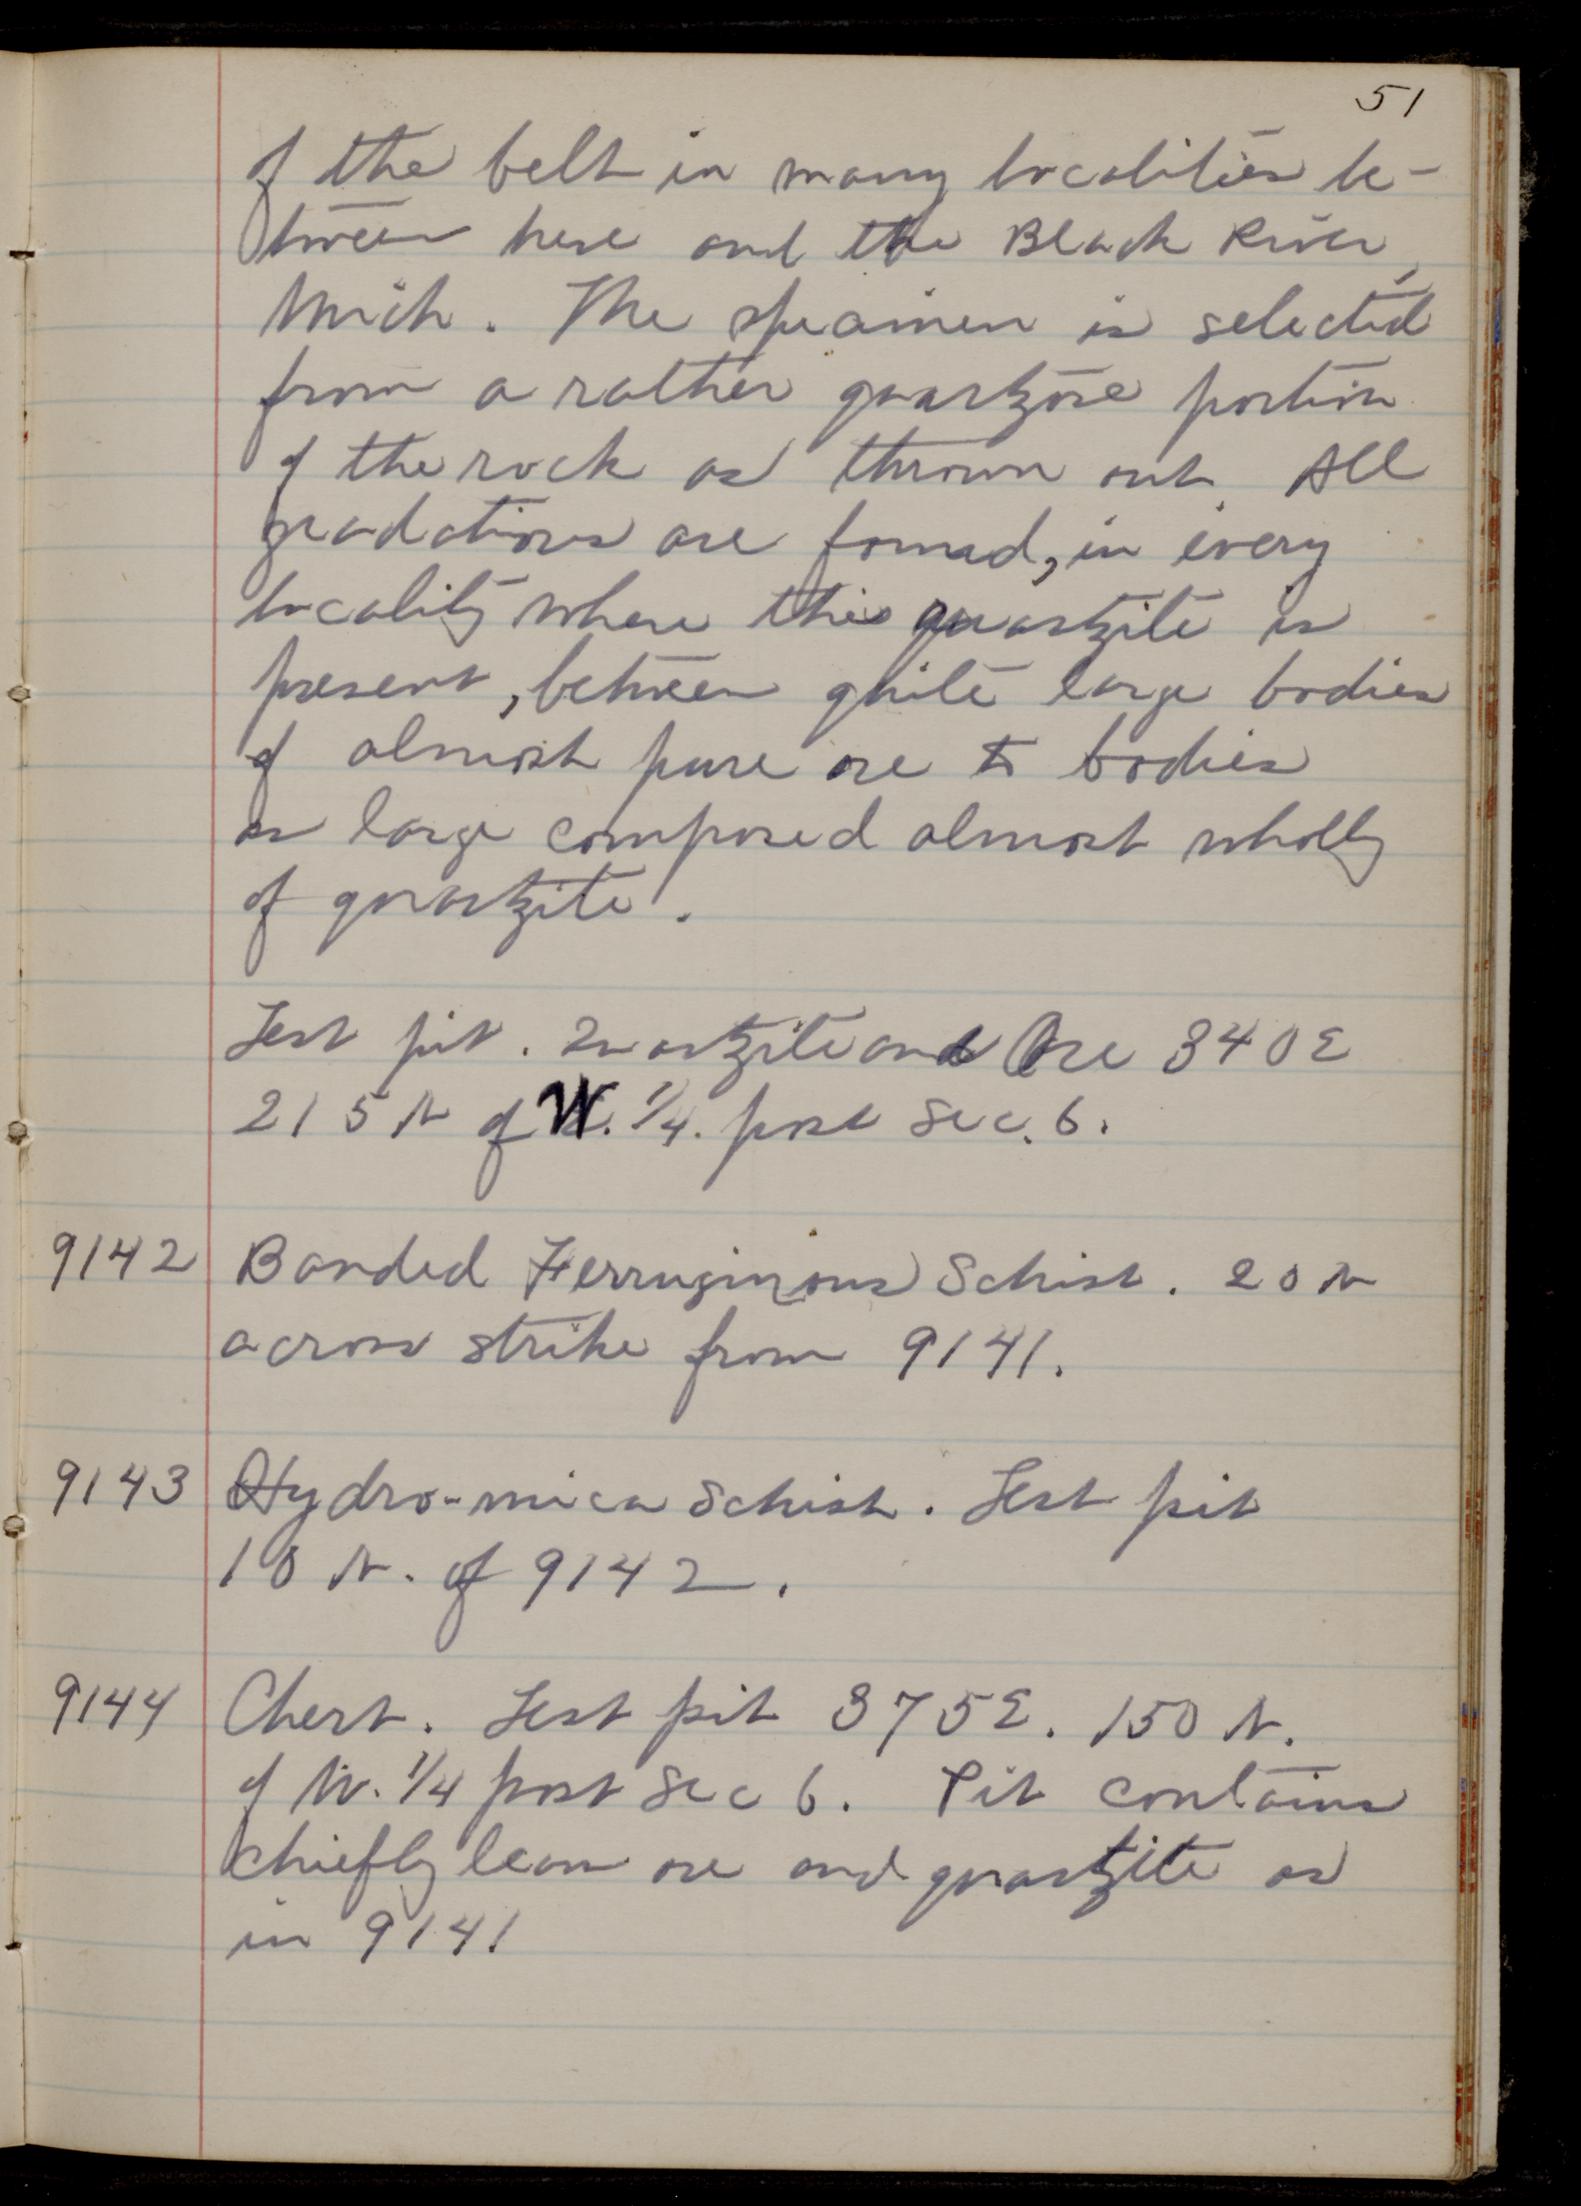 51
of the belt in many localities be-
tween here and the Black River,
Mich. The specimen is selected
from a rather quartzose portion
of the rock as thrown out. All
gradations are found, in every
locality where this quartzite is
present, between quite large bodies
of almost pure ore to bodies
as large composed almost wholly
of quartzite.
Test pit. Quartzite and Ore 340 E
215 N of W. 1/4. post Sec. 6.
9142 Banded Ferruginous Schist. 20 N
across strike from 9141.
9143 Hydro-mica Schist. Test pit
10 N. of 9142.
9144 Chert. Test pit 375 E. 150 N.
of W. 1/4 post Sec 6. Pit contains
chiefly lean ore and quartzite as
in 9141